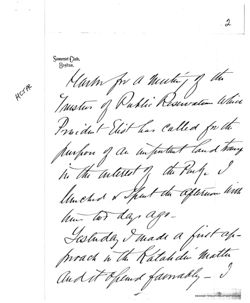 2
Somerset Club,
Boston.
Harbor for a meeting of the
Trustees of Public Reservations which
President Eliot has called for the
purpose of an important land
in the interest of the Park. I
lunched & spent the afternoon with
him two days ago—
Yesterday I made a first ap-
proach in the matter
and it opened favorably — I